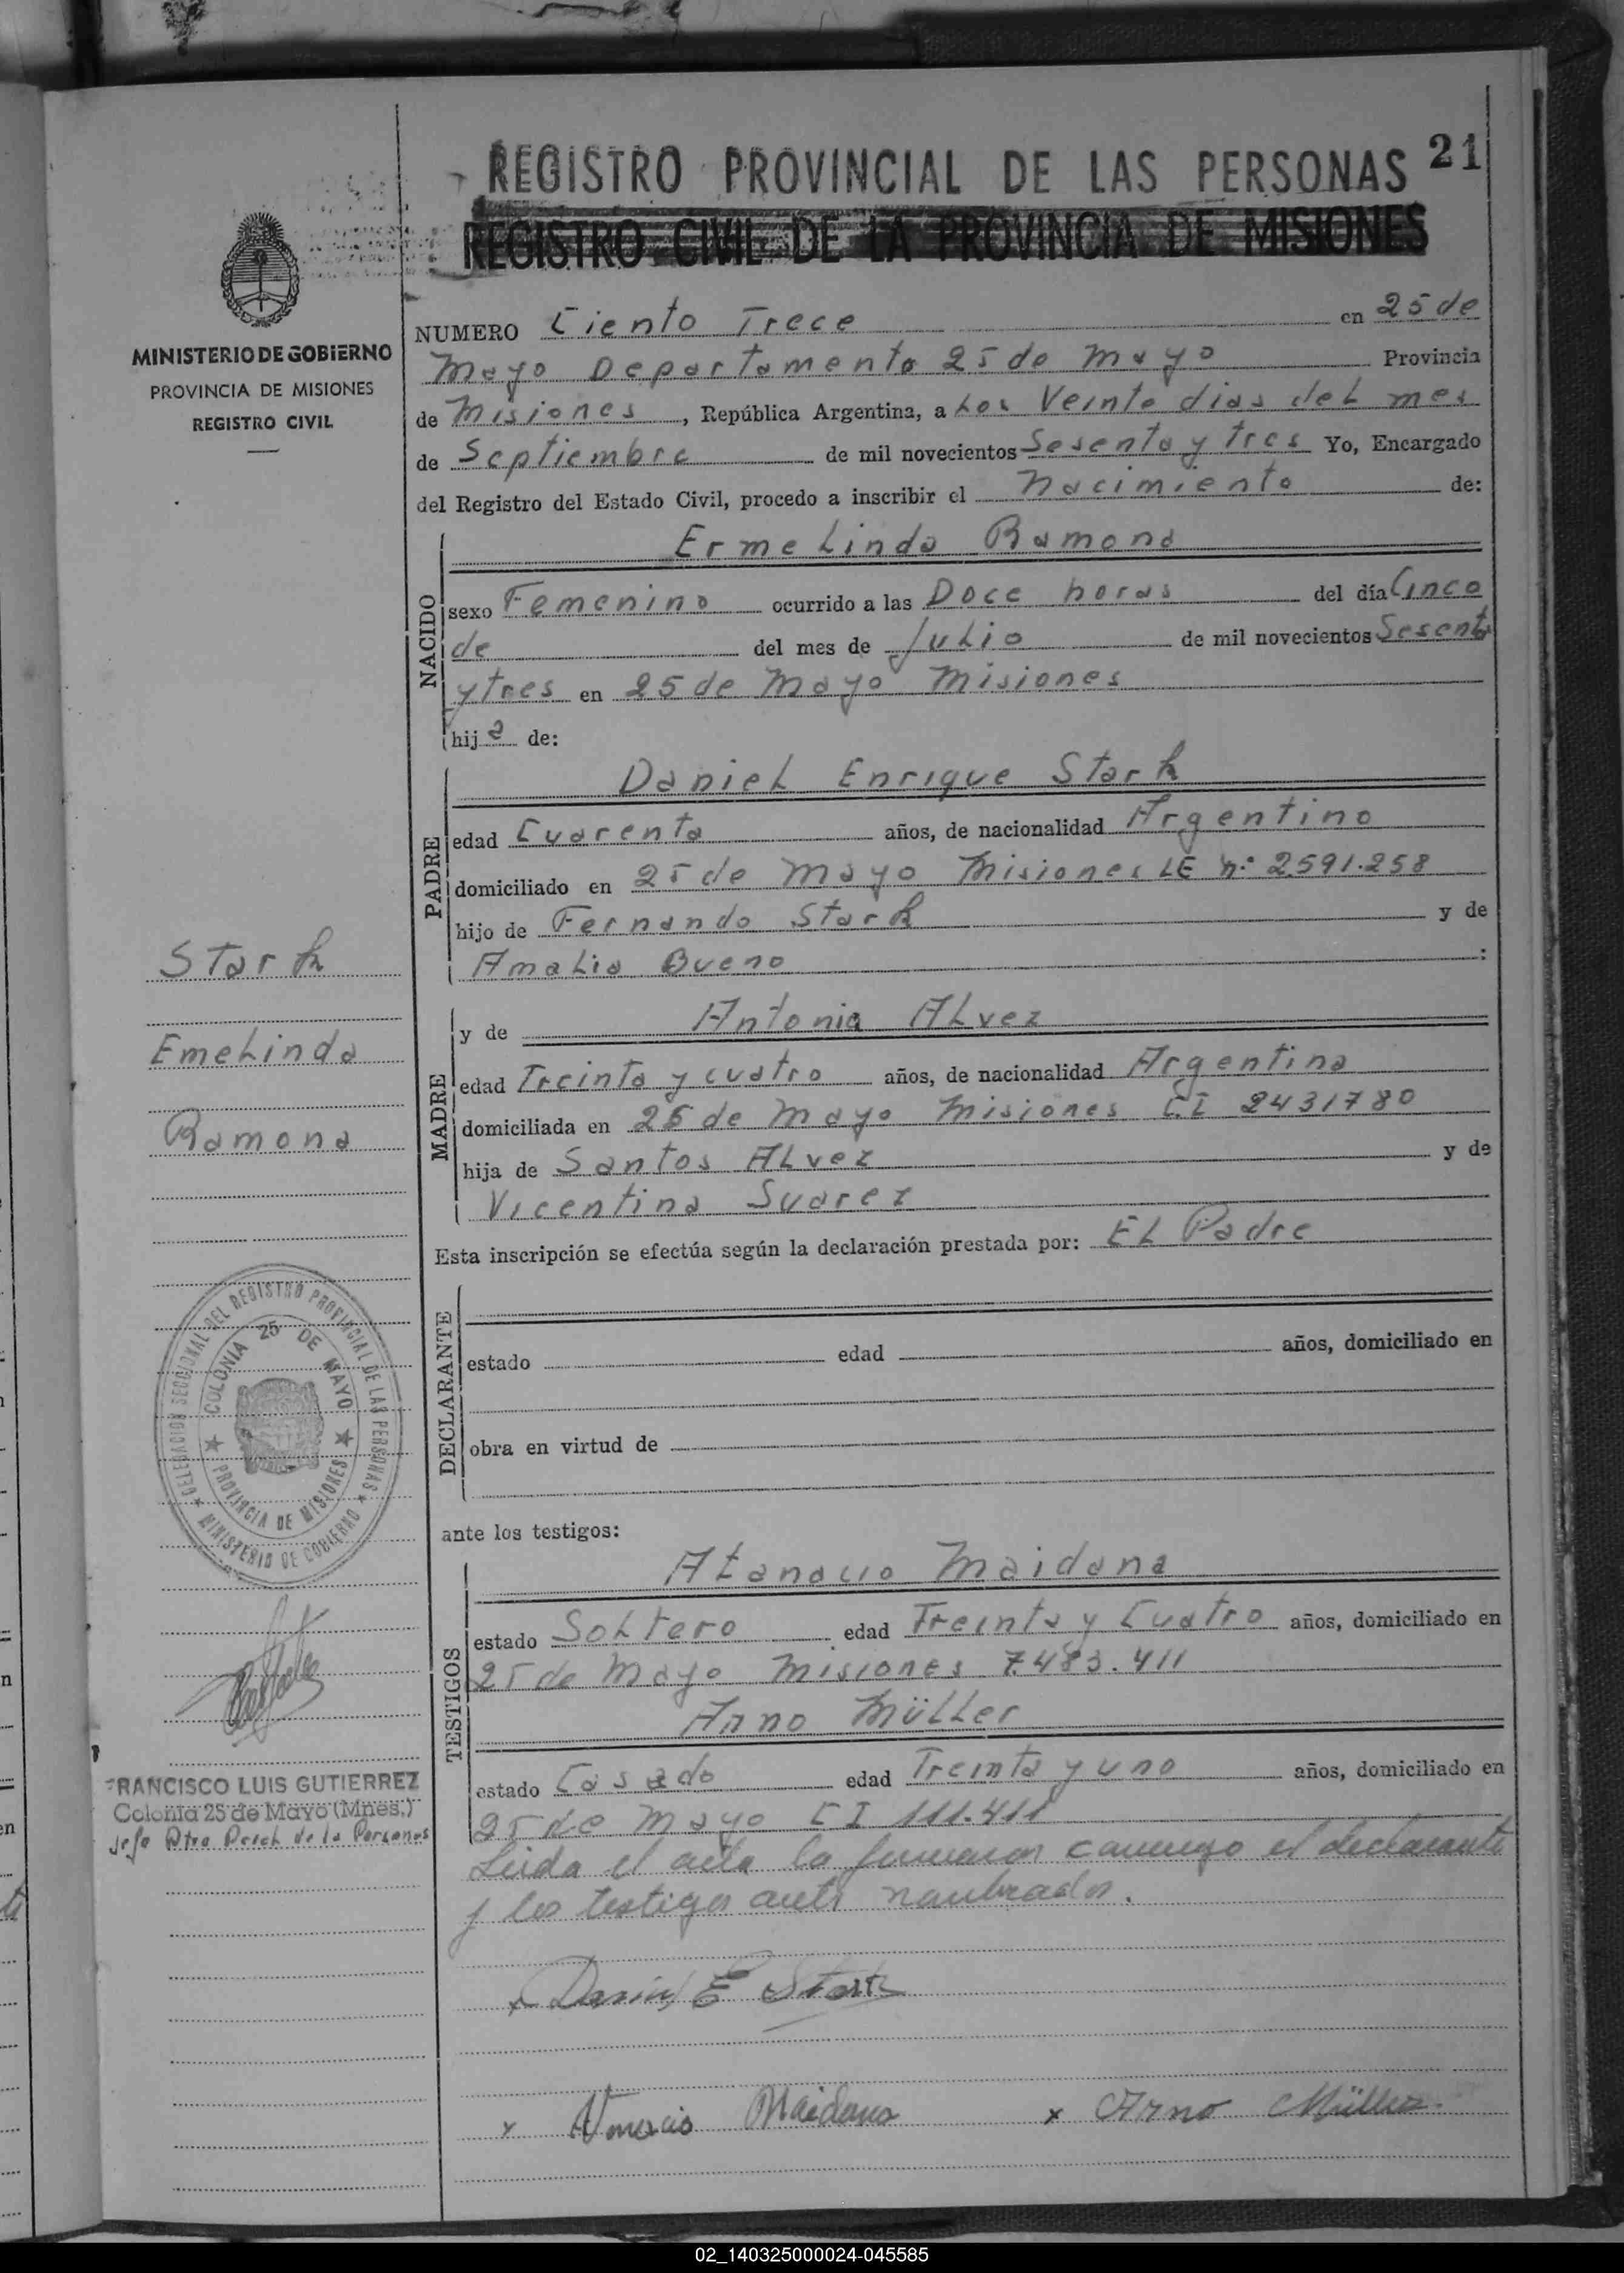 REGISTRO PROVINCIAL DE LAS PERSONAS 21
REGISTRO CIVIL DE LA PROVINCIA DE MISIONES
MINISTERIO DE GOBIERNO
PROVINCIA DE MISIONES
REGISTRO CIVIL
NUMERO Ciento Trece en 25 de
Mayo Departamento 25 de Mayo Provincia
de Misiones, República Argentina, a Los Veinte dias del mes
de Septiembre de mil novecientos Sesenta y tres Yo, Encargado
del Registro del Estado Civil, procedo a inscribir el Nacimiento de:
NACIDO
Ermelinda Ramona
sexo Femenino ocurrido a las Doce horas del día Cinco
de del mes de Julio de mil novecientos Sesenta
y tres en 25 de Mayo Misiones
hija de:
PADRE
Daniel Enrique Stark
edad Cuarenta años, de nacionalidad Argentino
domiciliado en 25 de Mayo Misiones LE nº 2.591.258
hijo de Fernando Stark y de
Amalia Bueno :
MADRE
y de Antonia Alvez
edad Treinta y cuatro años, de nacionalidad Argentina
domiciliada en 25 de Mayo Misiones C.I 2431780
hija de Santos Alvez y de
Vicentina Suarez
Esta inscripción se efectúa según la declaración prestada por: El Padre
DECLARANTE
estado edad años, domiciliado en
obra en virtud de
ante los testigos:
TESTIGOS
Atanacio Maidana
estado Soltero edad Treinta y Cuatro años, domiciliado en
25 de Mayo Misiones 7.483.411
Arno Müller
estado Casado edad Treinta y uno años, domiciliado en
25 de Mayo CI 111.411
Leida el acta la firmaron conmigo el declarante
y los testigos antes nombrados.
Daniel E Stark
x Atanacio Maidana x Arno Müller
Stark
Emelinda
Ramona
DELEGACION SECCIONAL DEL REGISTRO PROVINCIAL DE LAS PERSONAS
MINISTERIO DE GOBIERNO
COLONIA 25 DE MAYO
PROVINCIA DE MISIONES
FRANCISCO LUIS GUTIERREZ
Colonia 25 de Mayo (Mnes.)
Jefe de la Personas
02_140325000024-045585